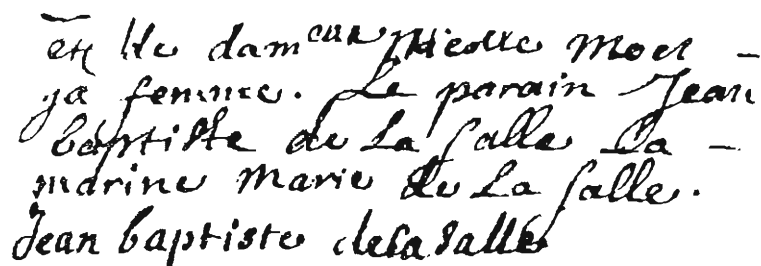 et de dam^elle Nicolle Moet –
sa femme. Le parain Jean
baptiste de La Salle La –
marine Marie de La Salle.
Jean baptiste delasalle